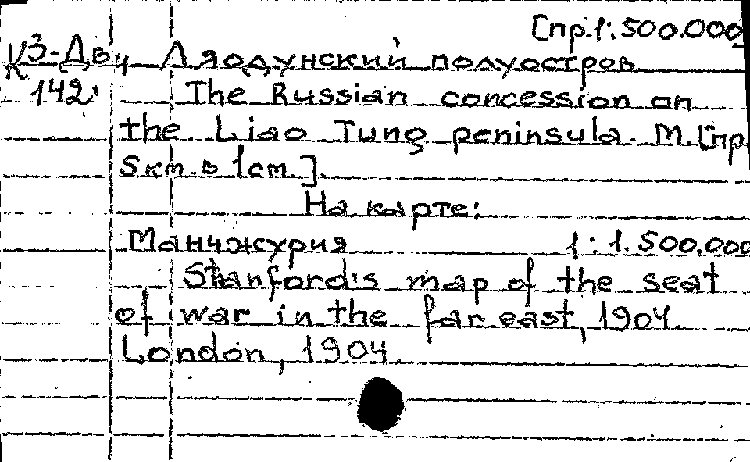 [пр.1:500.000
К 3-Дв 4 Ляодунский полуостров
142. The Russian concession on
the Liao Tung peninsula. М. [пр.
5 км. в 1 cm.].
На карте:
Манчжурия 1:1.500,000
Stanford's map of the seat
of war in the far east, 1904.
London, 1904.